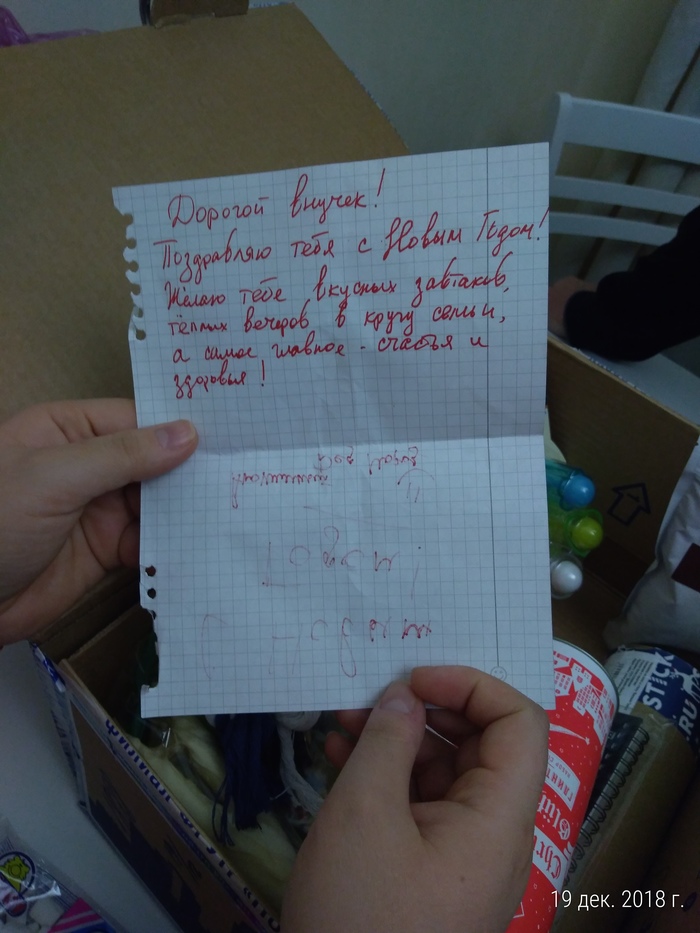 Дорогой внучек!
Поздравляю тебя с Новым Годом!
Желаю тебе вкусных завтаков,
тёплых вечеров в кругу семьи,
а самое главное - счастья и
здоровья!
С Новым
Годом!
STICK
Chr
19 дек. 2018 г.